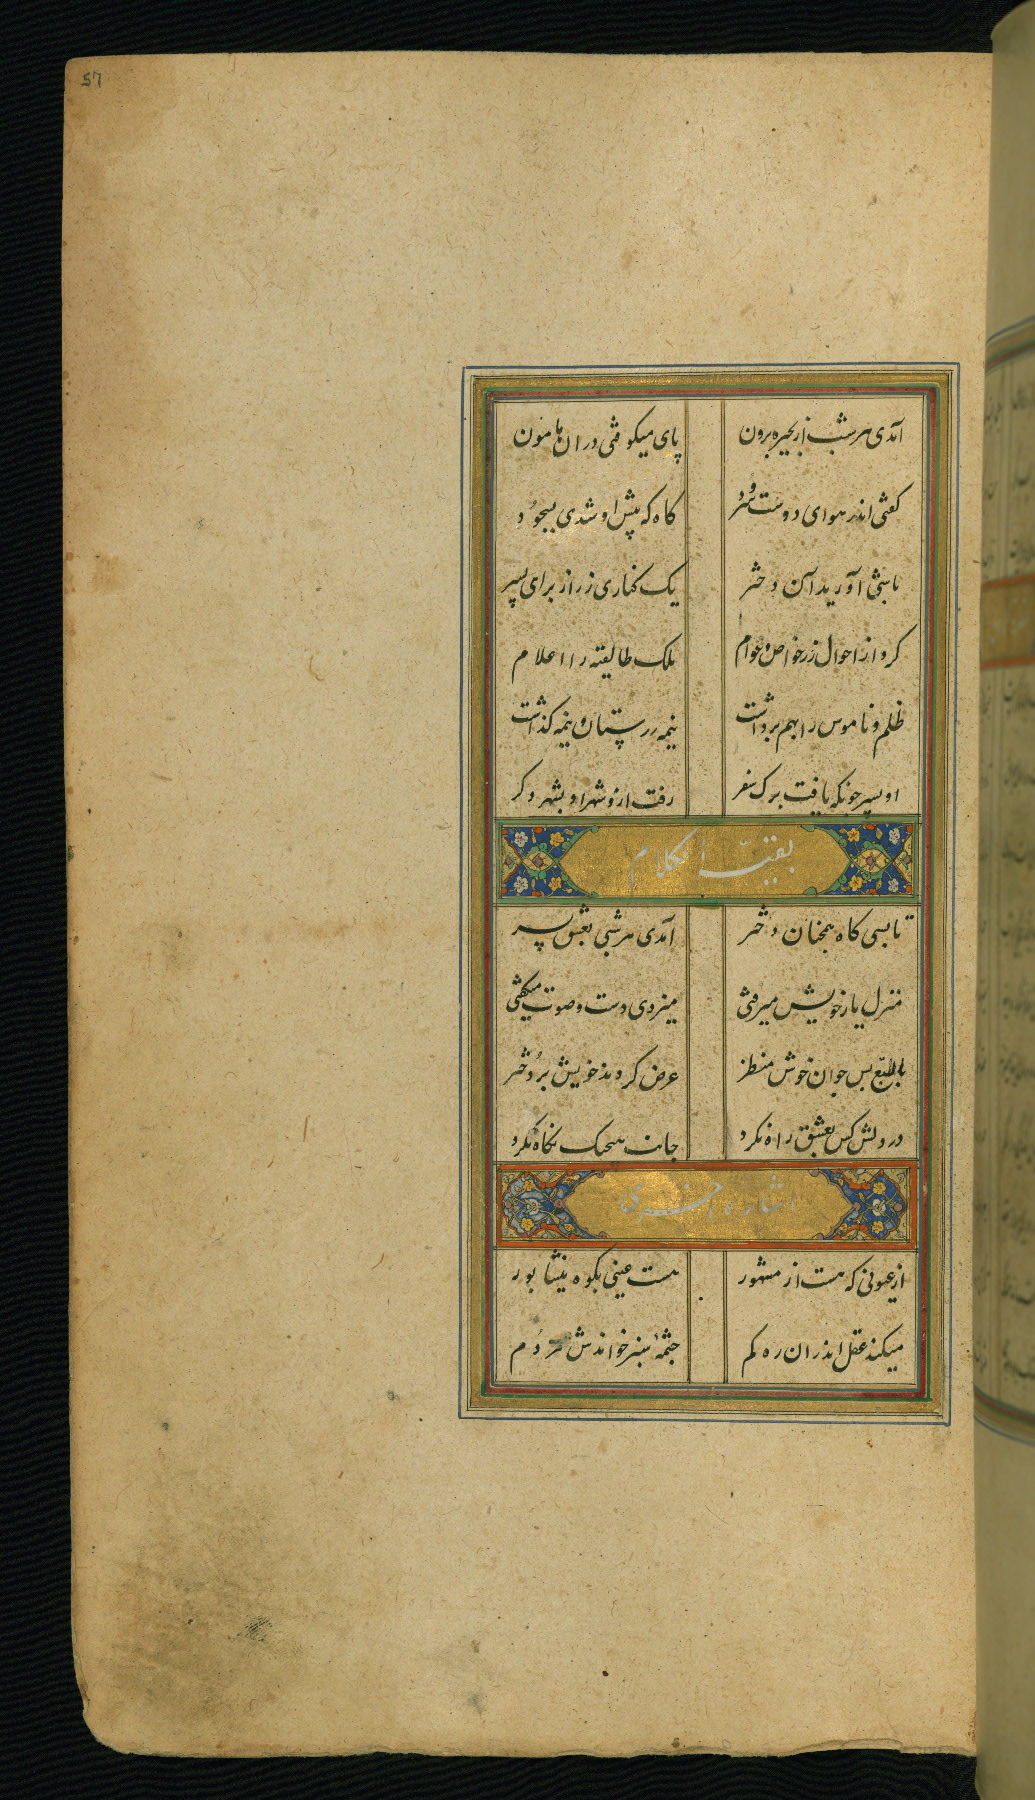 57
آمدی هر شب از بحیره برون پای میکوفتی در ان هامون
کفتی اندر هوای دوست سرود کاه که پیش او شدی بیخود
تا شبی آورید آن دختر یک کناری زر از برای پسر
کرد از احوال زر خواص و عوام ملک طالیقته را اعلام
ظلم و ناموس را بهم برداشت نیمه زر ستان و نیمه کذاشت
او پسر چونکه یافت برک سفر رفت از و شهر او بشهر دکر
بقیة الکلام
تا بسی کاه همچنان دختر آمدی هر شبی بعشق پسر
منزل یار خویش میرفتی میزدی دست و صوت میکفتی
بالطبع بس جوان خوش منظر عرض کردند خویش بر دختر
در دلش کس بعشق راه نکرد جانب هیچیک نکاه نکرد
اشاره اخری
از عیونی که هست از مشهور هست عینی بکوه نیشابور
میکند عقل اندران ره کم چشمه سبز خواندش مردم